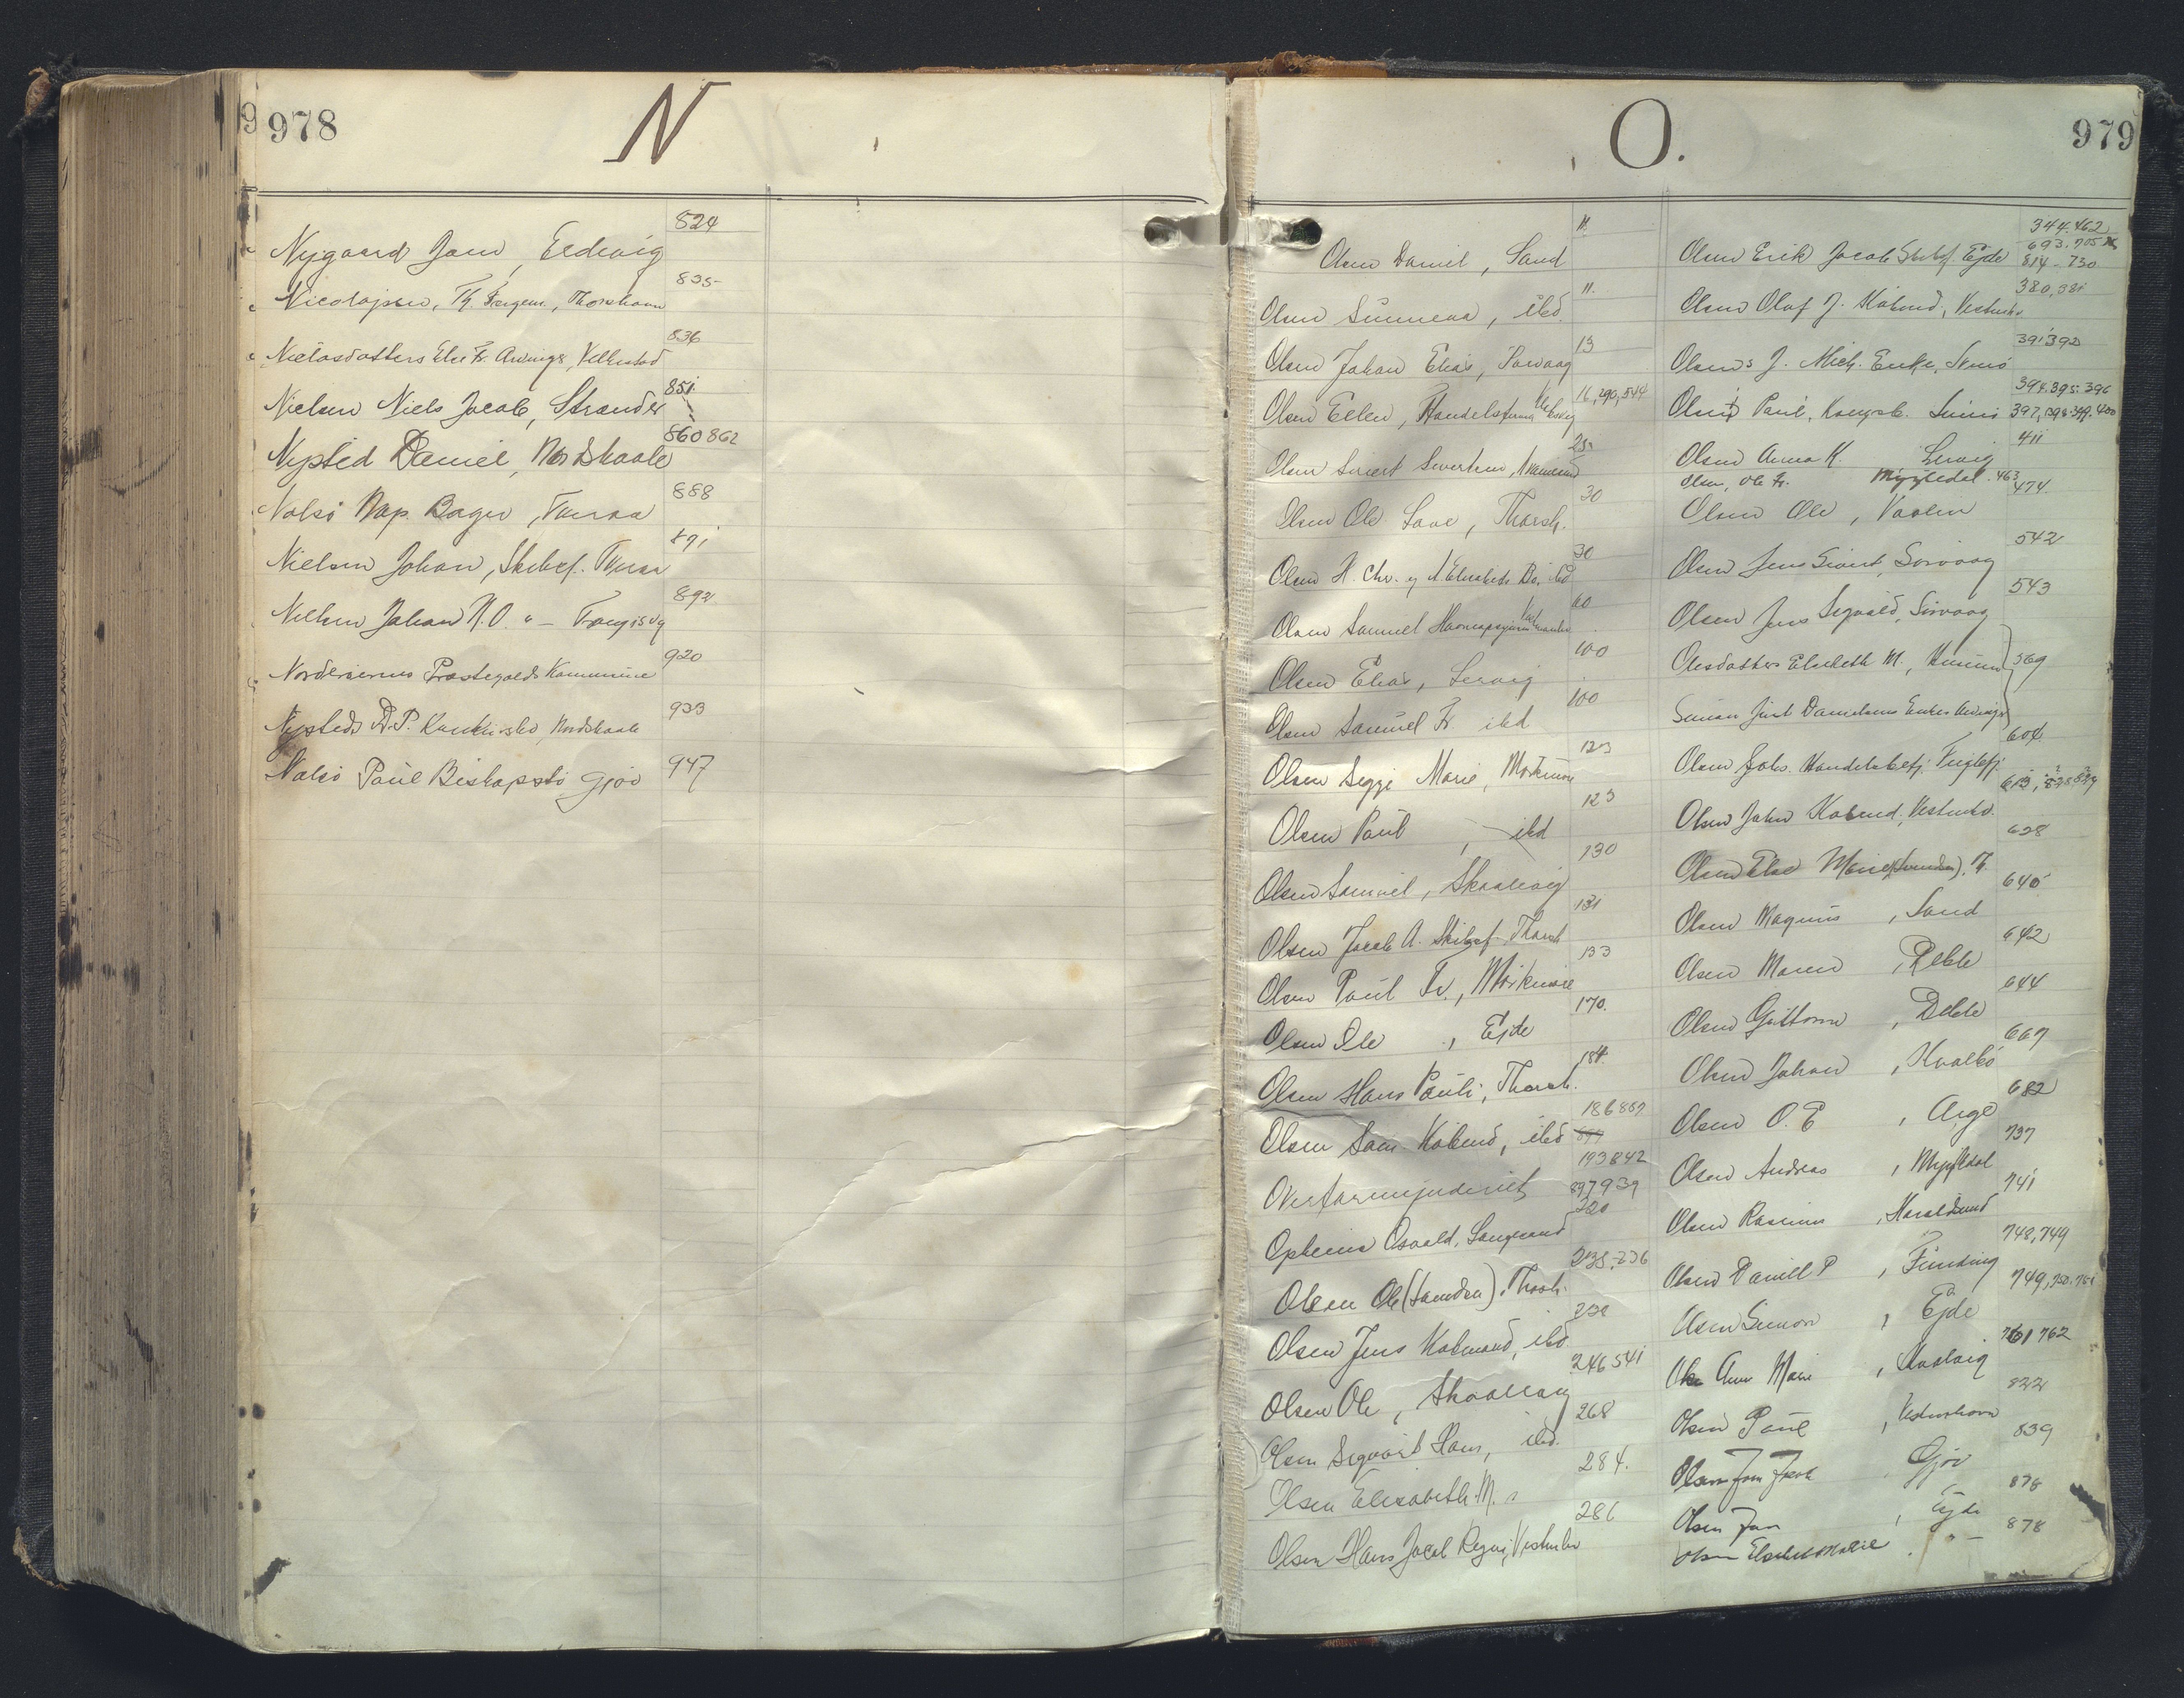 978
N
Nygaard Jans, Eedevig 824
Nicolajsen, Th. Færgem., Thorshavn 835
Niclasdatters Else Fr. Arvinger, Velbestad 836
Nielsen Niels Jacob, Strænder 851
Nysted Daniel, Nordskaale 860 862
Nolsø Nap. Bager, Tveraa 888
Nielsen Johan, Skibsf. Tveraa 891
Nielsen Johan N.O. " — Trangisvg 892
Norderøernes Præstegjelds Kommune 920
Nysteds D.P. Nordskaale 933
Nolsø Paul Bishopstø Gjov 947
O.
979
Olsen Daniel, Sand 11.
Olsen Sunneva, ibd. 11.
Olsen Johan Elias, Sorvaag 13
Olsen Ellen, Handelsfirma 16, 290, 544
Olsen Sivert Sivertsen, Kvannesund
Olsen Ole Save, Thorsh. 30
Olsen H. Chr. og A. Elisabeth Bo, ibd 30
Olsen Samuel 60
Olsen Elias, Lervig 100
Olsen Samuel Fr ibd 100
Olsen Sigge Marie, Mörkenöre 123
Olsen Paul, ibd 123
Olsen Samuel, Skaalevig 130
Olsen Jacob A. Skibsf. Thorsh 131
Olsen Paul Fr., Mörkenöre 133
Olsen Ole, Ejde 170.
Olsen Hans Pauli, Thorsh. 184.
Olsen Sam. Købmd, ibd 186 889
Overformynderiet 193 842 897 939
Opheim Osvald, Langesand 220
Olsen Ole (Lamden), Thorsh. 235, 236
Olsen Jens Købmand, ibd. 239
Olsen Ole, Skaalevig 246 541
Olsen Sigvart Hans, ibd. 268
Olsen Elisabeth M. " 284.
Olsen Hans Jacob Regin, Vestmhv 286
Olsen Erik Jacob Skibsf. Ejde 344. 462 693. 705 814 - 730
Olsen Olaf J. Købmd, Vestmhv 380, 381
Olsens J. Mich. Enke, Sumø 391 392
Olsen Paul, Kongsb. Sumø 394. 395. 396 397, 398. 399. 400
Olsen Anna K. Lervig 411
Olsen, Ole Fr. Mygledal. 463
Olsen Ole, Vaalen 474.
Olsen Jens Sivert, Sorvaag 542
Olsen Jens Sigvald, Sorvaag 543
Olesdatter Elsebeth M., Husum 569
Simon Just Danielsens Enkes Arvinger
Olsen Johs. Handelsbetj. Fuglefj. 604
Olsen John Købmd, Vestmhv. 613, 828 829
Olsen Else Marie, 628
Olsen Magnus, Sand 640
Olsen Maren, Deble 642
Olsen Guttorm, Deble 644
Olsen Johan, Kvalbø 667
Olsen O. E, Arge 682
Olsen Andreas, Mygledal 737
Olsen Rasmus, Haraldsund 741
Olsen Daniel P, Funding 748, 749
Olsen Simon, Ejde 749, 750, 751
Olsen Anne Marie, Kvalvig 761 762
Olsen Paul, Vestmhavn 822
Olsen Jens Jacob, Gjov 839
Olsen Jan, Ejde 878
Olsen Elsebeth Marie, " — 878